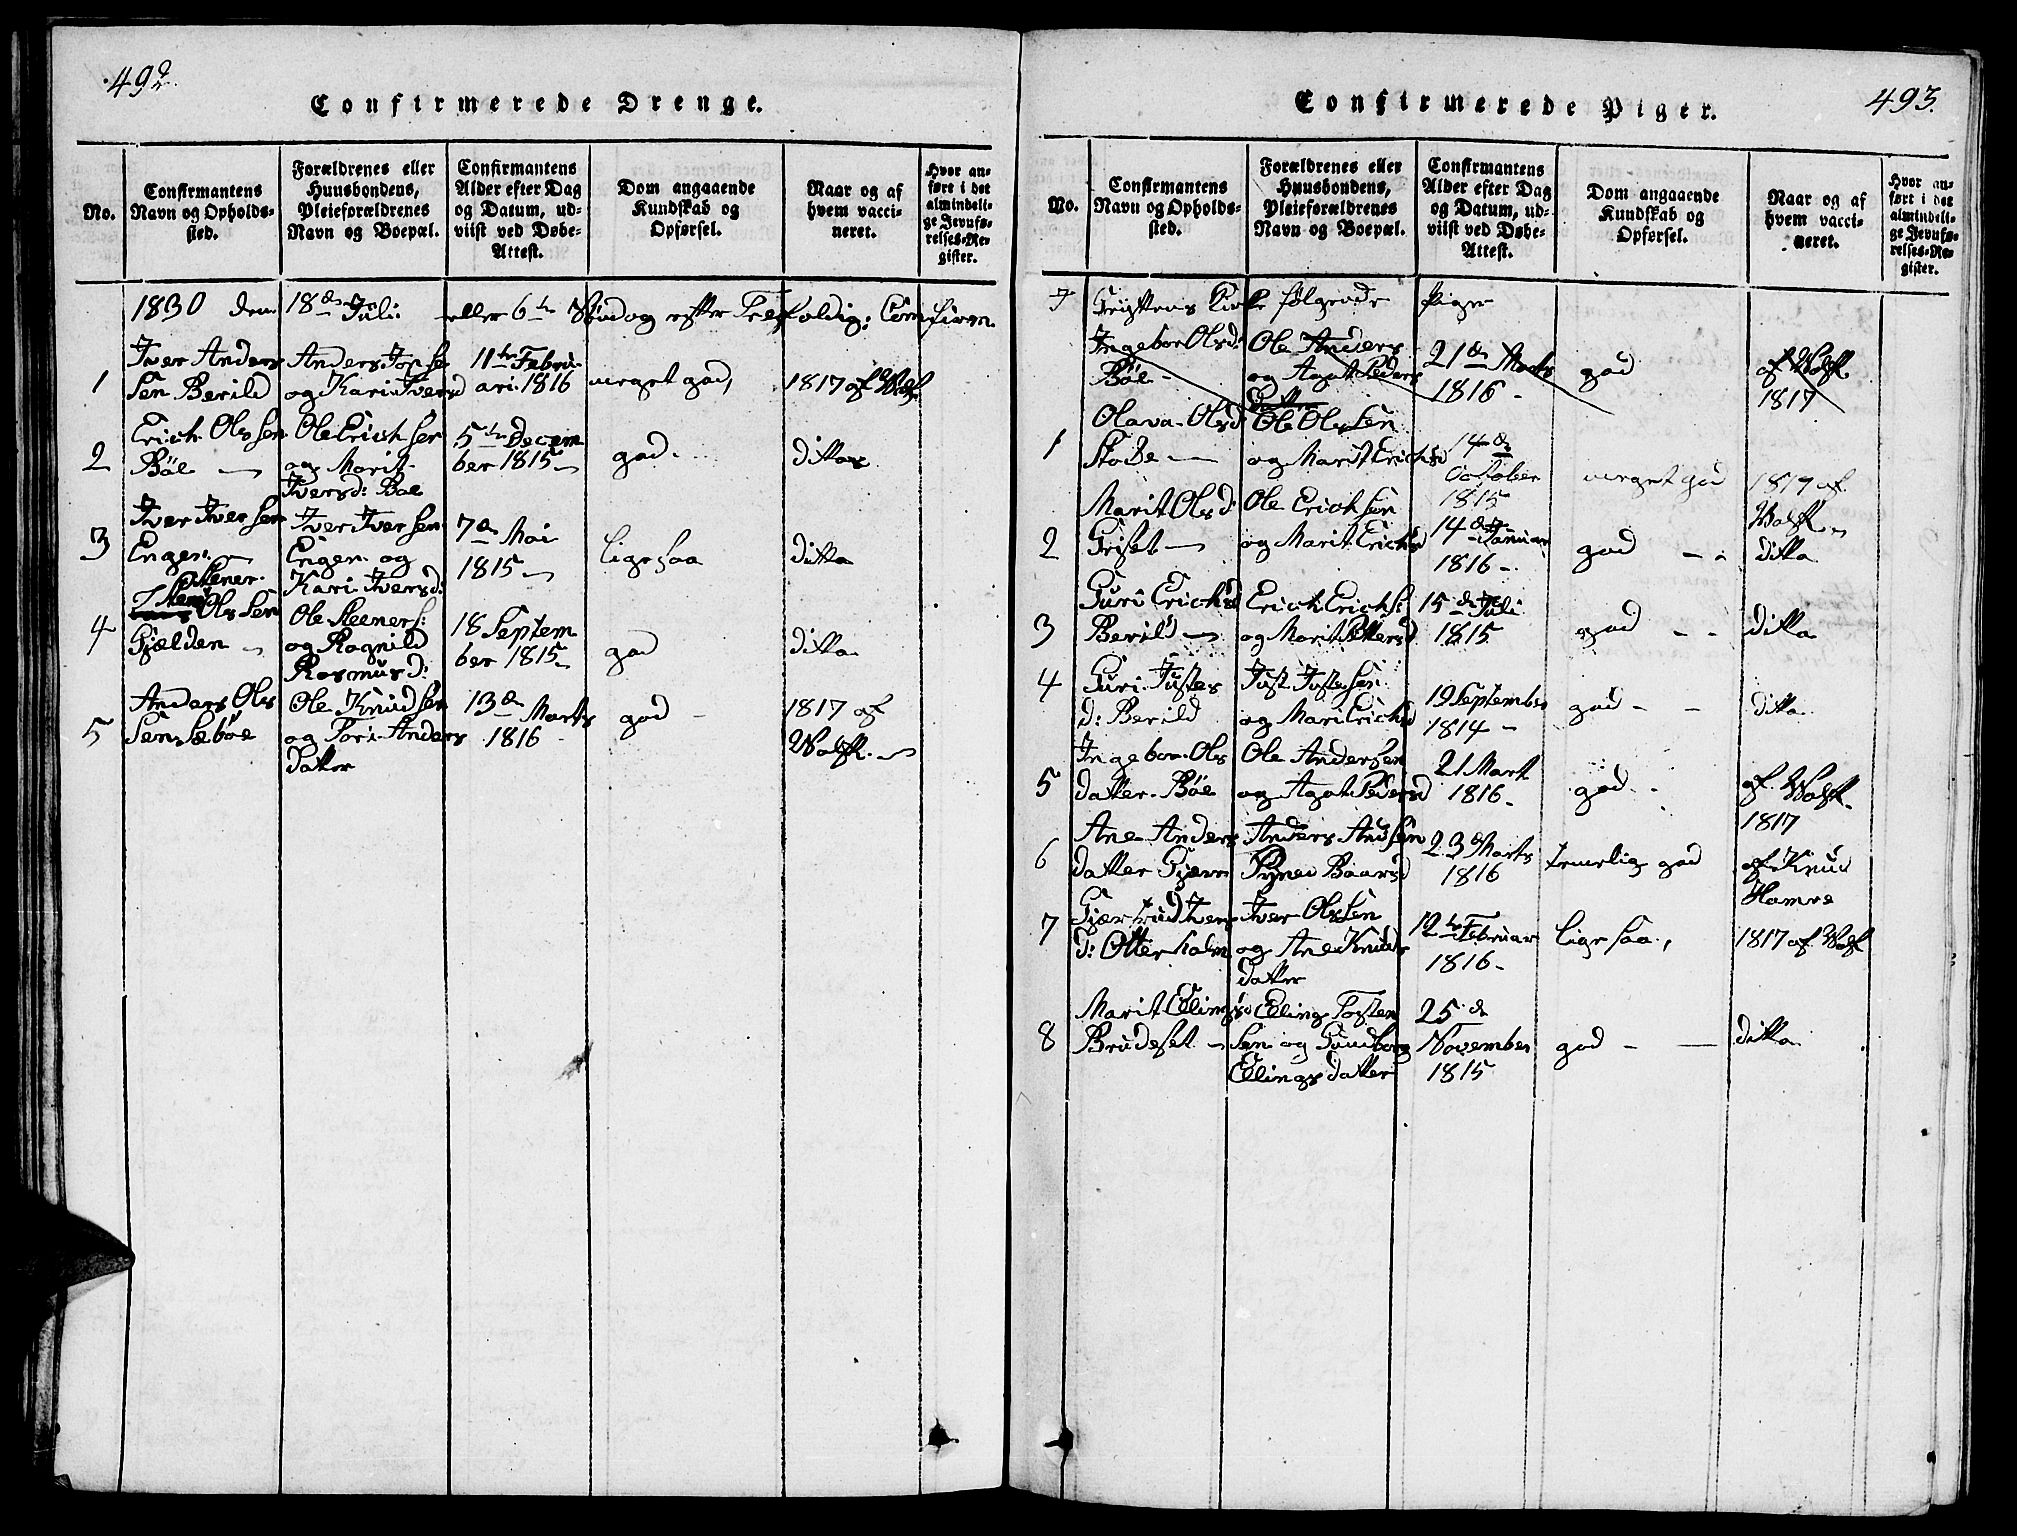 492.
Confirmerede Drenge.
No.
Confirmantens Navn og Opholds-sted.
Forældrenes eller Huusbondens, Pleieforældrenes Navn og Boepæl.
Confirmantens Alder efter Dag og Datum, ud-viist ved Døbe-Attest.
Dom angaaende Kundskab og Opførsel.
Naar og af hvem vacci-neret.
Hvor an-ført i det almindeli-ge Jevnfø-relses-Re-gister.
1830 den 18de Juli eller 6te Søndag efter Trefoldig: Confirm.
1
Iver Anders Sen Berild
Anders Iver Sen og Kari Ivers d
11te Febru ari 1816
meget god,
1817 af Wolf.
2
Erich Ols Sen Böe
Ole Erich Sen og Marit Iversd: Böe
5te Decem ber 1815
god
ditto
3
Iver Iver Sen Enger
Iver Iver Sen Enger og Kari Iversd:
7de Mai 1815
lige saa
ditto
4
Stener Ols Sen Gjelden
Ole Steeners: og Ragnild Rasmusd:
18 Septem ber 1815
god
ditto
5
Anders Ols Sen Sæböe
Ole Knud Sen og Pori Anders datter
13de Marts 1816
god
1817 af Wolff.
493.
Confirmerede Piger.
No.
Confirmantens Navn og Opholds-sted.
Forældrenes eller Huusbondens, Pleieforældrenes Navn og Boepæl.
Confirmantens Alder efter Dag og Datum, ud-viist ved Døbe-Attest.
Dom angaaende Kundskab og Opførsel.
Naar og af hvem vacci-neret.
Hvor an-ført i det almindeli-ge Jevnfø-relses-Re-gister.
I Gryttens Kirke følgende Piger
Ingebor Olsd: Böe
Ole Anders og Agat Peders datter
21de Marts 1816
god
af Wolff. 1817
1
Olava Olsd Stokke
Ole Ols Sen og Marit Erichsd
14de October 1815
meget god
1817 af Wolff
2
Marit Olsd: Griset
Ole Erich Sen og Marit Erichsd
14de Januar 1816
god
ditto
3
Guri Erichsd Berild
Erich Erichs: og Marit Pettersd
15de Juli 1815
god
ditto
4
Guri Justes d: Berild
Just Justesen og Mari Erichsd
19 September 1814
god
ditto
5
Ingebor Ols datter Böe
Ole Andersen og Agat Pedersd
21 Mart 1816
god
af Wolff. 1817
6
Ane Anders datter
Anders And Sen Baarsd
23de Marts 1816
temelig god
af Knud Hamre
7
Gjertrud Ivers d: Otterholm
Iver Ols Sen og Ane Knuds datter
12te Februar 1816
lige saa,
1817 af Wolf
8
Marit Ellingsd Brudeset
Elling Tosten Sen og Gunborg Ellings datter
25de November 1815
god
ditto